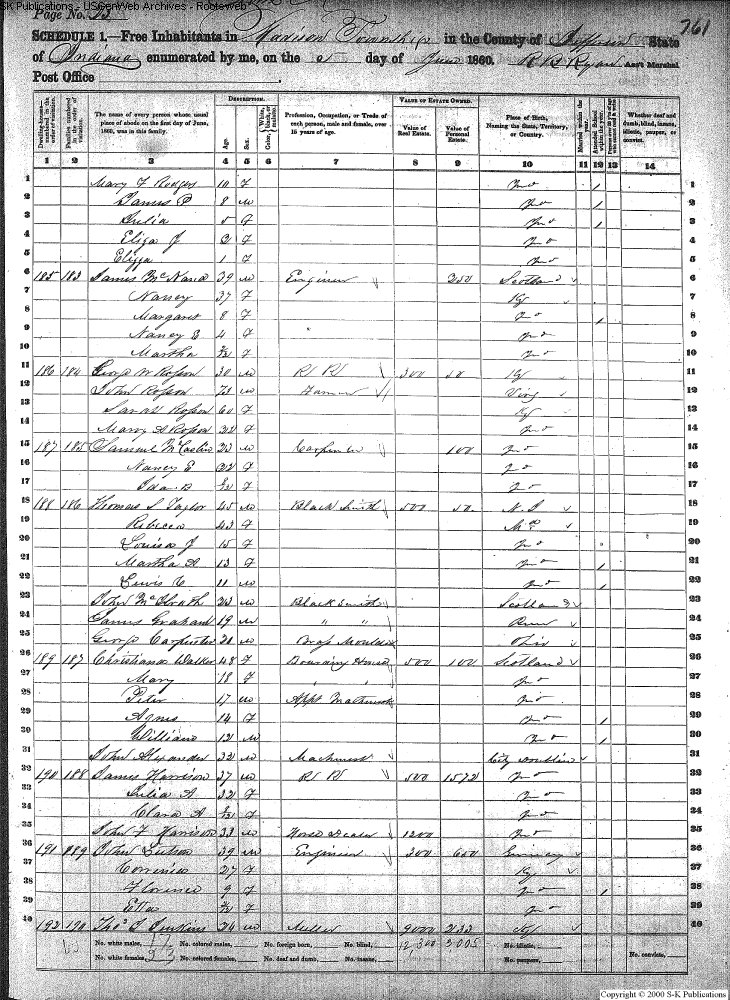 S-K Publications - USGenWeb Archives - Rootsweb
Page No. 25 761
SCHEDULE 1.—Free Inhabitants in Madison Township in the County of Jefferson State
of Indiana enumerated by me, on the day of June 1860. R B Ryan Ass't Marshal
Post Office
DESCRIPTION. VALUE OF ESTATE OWNED.
Dwelling-houses—numbered in the order of visitation. Families numbered in the order of visitation. The name of every person whose usual place of abode on the first day of June, 1860, was in this family. Age Sex Color, White, black, or mulatto. Profession, Occupation, or Trade of each person, male and female, over 15 years of age. Value of Real Estate. Value of Personal Estate. Place of Birth, Naming the State, Territory, or Country. Married within the year. Whether deaf and dumb, blind, insane, idiotic, pauper, or convict.
1 2 3 4 5 6 7 8 9 10 11 12 13 14
1 Mary F Rodgers 10 F Ind / 1
2 James P 8 M Ind / 2
3 Julia 5 F Ind / 3
4 Eliza J 3 F Ind 4
5 1 F Ind 5
6 185 183 James McNana 39 M Engineer 250 Scotland 6
7 Nancy 37 F Ky 7
8 Margaret 8 F Ind / 8
9 Nancy E 4 F " Ind 9
10 Martha F Ind 10
11 186 184 George W Rosson 30 M R R 300 50 Ky 11
12 John Rosson 73 M Farmer Virg 12
13 Sarah Rosson 60 F Ky 13
14 Mary A Rosson 32 F Ind 14
15 187 185 Samuel McCaslin 23 M Carpenter 100 Ind 15
16 Nancy E 22 F Ind 16
17 Ida B F Ind 17
18 188 186 Thomas S Taylor 45 M Black Smith 500 50 N J 18
19 Rebecca 43 F Md 19
20 Louisa J 15 F Ind 20
21 Martha A 13 F Ind / 21
22 Lewis C 11 M Ind / 22
23 John McIlrath 23 M Black Smith Scotland 23
24 James Graham 19 M " " Penn 24
25 George Carpenter 21 M Brass Moulder Ohio 25
26 189 187 Christiana Walker 48 F Boarding House 500 100 Scotland 26
27 Mary 18 F " " Ind 27
28 Peter 17 M Appt Machinist Ind 28
29 Agnes 14 F Ind / 29
30 William 12 M Ind / 30
31 John Alexander 32 M Machinist City Dublin 31
32 190 188 James Harrison 37 M R R 500 1572 Ind 32
33 Julia A 32 F Ind 33
34 Clara A F Ind 34
35 John F Harrison 33 M Horse Dealer 1200 Ind 35
36 191 189 John 39 M Engineer 300 600 Germany 36
37 27 F Ky 37
38 Florence 9 F Ind / 38
39 Etta F Ind 39
40 192 190 Thos J Jenkins 24 M Miller 9000 233 Ky 40
No. white males, 17 No. colored males, No. foreign born, No. blind, 12,300 3005 No. idiotic,
No. white females, 23 No. colored females, No. deaf and dumb, No. insane, No. paupers, No. convicts,
Copyright © 2000 S-K Publications